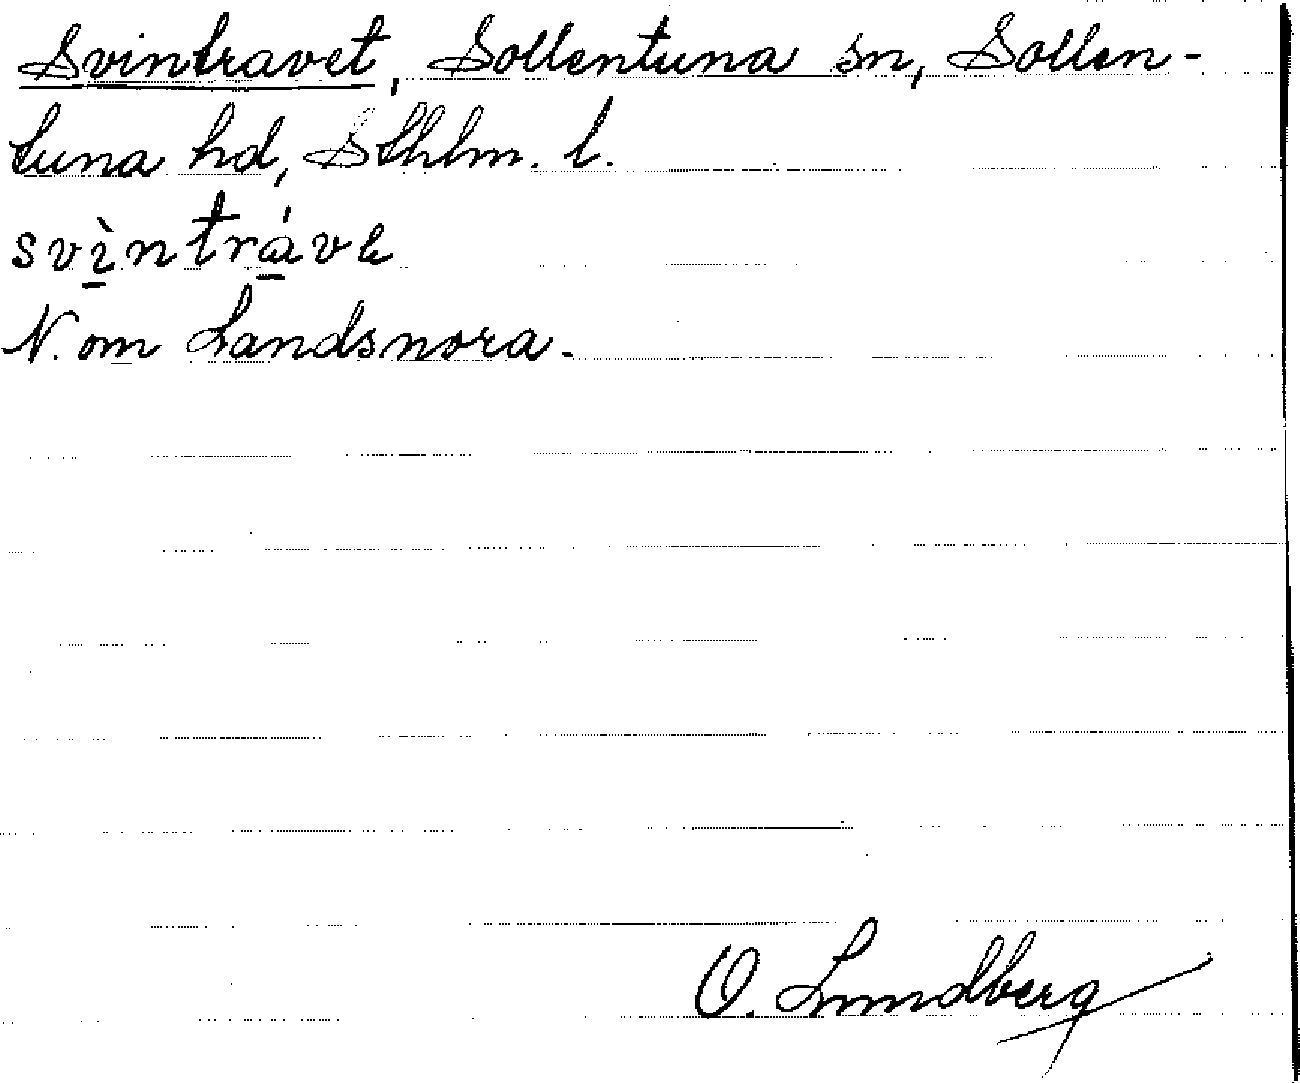 Svintravet, Sollentuna sn, Sollen-
tuna hd, Sthlm. l.
svì̠ntrá̠vɩ
N. om Landsnora.
O. Lundberg